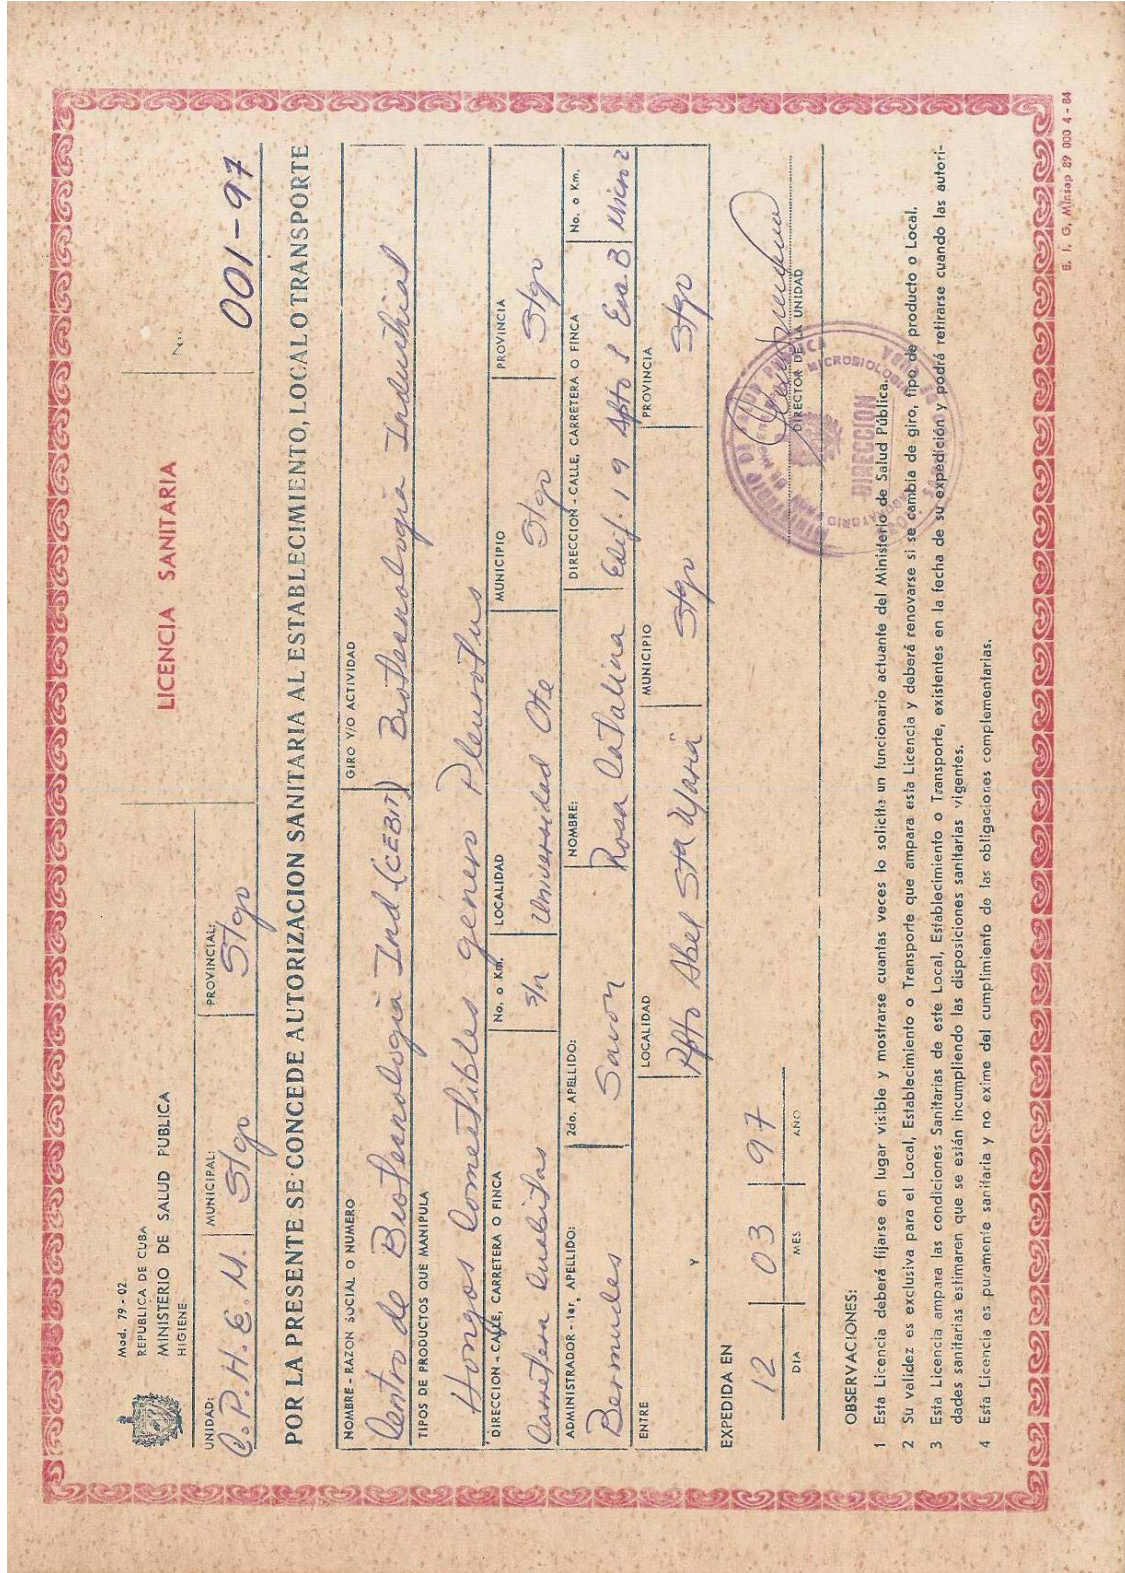 Mod. 79 - 02
REPUBLICA DE CUBA
MINISTERIO DE SALUD PUBLICA
HIGIENE
LICENCIA SANITARIA
No.
001-97
UNIDAD: C.P.H.E.M. MUNICIPAL: Stgo PROVINCIAL: Stgo
POR LA PRESENTE SE CONCEDE AUTORIZACION SANITARIA AL ESTABLECIMIENTO, LOCAL O TRANSPORTE
NOMBRE - RAZON SOCIAL O NUMERO GIRO Y/O ACTIVIDAD
Centro de Biotecnología Ind (CEBIT) Biotecnología Industrial
TIPOS DE PRODUCTOS QUE MANIPULA
Hongos Comestibles género Pleurotus
DIRECCION - CALLE, CARRETERA O FINCA No. o Km. LOCALIDAD MUNICIPIO PROVINCIA
Carretera s/n Universidad Ote Stgo Stgo
ADMINISTRADOR - 1er. APELLIDO: 2do. APELLIDO: NOMBRE: DIRECCION - CALLE, CARRETERA O FINCA No. o Km.
Bermudes Savon Rosa Catalina Edif. 19 Apto
ENTRE Y LOCALIDAD MUNICIPIO PROVINCIA
Rpto Abel Sta Maria Stgo Stgo
EXPEDIDA EN
12 03 97
DIA MES AÑO
DIRECTOR DE LA UNIDAD
MINISTERIO DE SALUD PUBLICA
MICROBIOLOGIA
DIRECCION
OBSERVACIONES:
1 Esta Licencia deberá fijarse en lugar visible y mostrarse cuantas veces lo solicite un funcionario actuante del Ministerio de Salud Pública.
2 Su validez es exclusiva para el Local, Establecimiento o Transporte que ampara esta Licencia y deberá renovarse si se cambia de giro, tipo de producto o Local.
3 Esta Licencia ampara las condiciones Sanitarias de este Local, Establecimiento o Transporte, existentes en la fecha de su expedición y podrá retirarse cuando las autori-
dades sanitarias estimaren que se están incumpliendo las disposiciones sanitarias vigentes.
4 Esta Licencia es puramente sanitaria y no exime del cumplimiento de las obligaciones complementarias.
E. I. G, Minsap 89 000 4 - 84